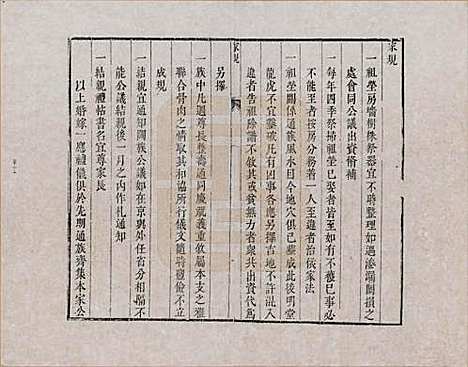 家規
一祖塋房屋樹株祭器宜不時整理如遇滲漏闕損之
處會同公議出資脩補
一每年四季祭掃祖塋已娶者皆至如有不獲已事必
不能至者按房分務着一人至違者治依家法
一祖塋關係通族風水目今地穴俱已塟成此後明堂
龍虎不宜鑿破凡有因事各房另擇吉地不許混入
違者告祖除譜不敘其或貧無力者衆共出資代爲
家規
另擇
一族中凡遇尊長整壽通同慶祝義重敘屬本支之雅
聯合骨肉之情取其和協所行儀文隨時從儉不立
成規
一結親宜通知闔族公議如在京與外任省分相隔不
能公議結親後一月之內作札通知
一結親禮帖書名宜尊家長
以上婚嫁一應禮儀俱於先期通族齊集本家公